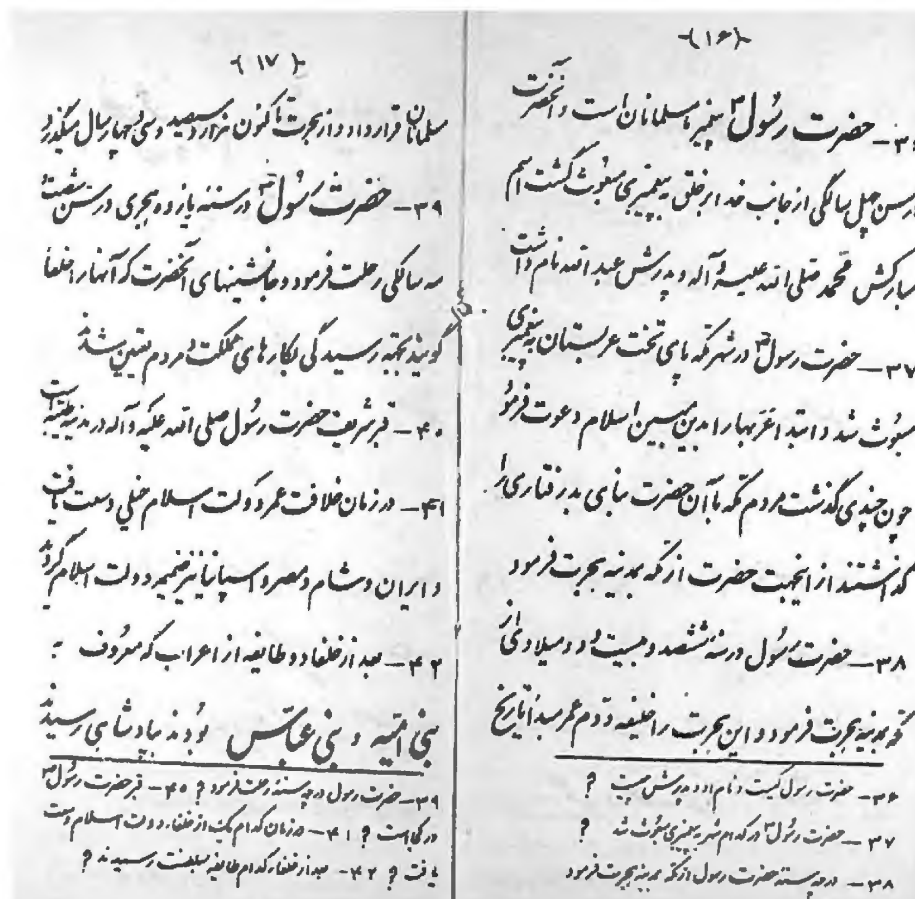 ﴿۱۶﴾
۳۶ – حضرت رسول ص پیغمبر ما مسلمانان است و آنحضرت
در سن چهل سالگی از جانب خدا بر خلق به پیغمبری مبعوث گشت اسم
مبارکش محمد صلی الله علیه و آله و پدرش عبدالله نام داشت
۳۷ – حضرت رسول ص در شهر مکه پای تخت عربستان به پیغمبری
مبعوث شد و ابتدا عربها را بدین مبین اسلام دعوت فرمود
چون چندی گذشت مردم مکه با آن حضرت بنای بدرفتاری را
گذاشتند از اینجهت حضرت از مکه بمدینه هجرت فرمود
۳۸ – حضرت رسول در سنه ششصد و بیست و دو میلادی از
مکه بمدینه هجرت فرمود و این هجرت را خلیفه دوم عمر مبدأ تاریخ
۳۶ – حضرت رسول کیست و نام او و پدرش چیست ?
۳۷ – حضرت رسول ص در کدام شهر به پیغمبری مبعوث شد ?
۳۸ – در چه سنه حضرت رسول از مکه بمدینه هجرت فرمود
﴿۱۷﴾
مسلمانان قرار داد و از هجرت تا کنون هزار و سیصد و سی و چهار سال میگذرد
۳۹ – حضرت رسول ص در سنه یازده هجری در سن شصت و
سه سالگی رحلت فرمود و جانشینهای آنحضرت که آنها را خلفا
گویند بجهته رسیدگی بکارهای مملکت و مردم تعیین شدند
۴۰ – قبر شریف حضرت رسول صلی الله علیه و آله در مدینه طیبه است
۴۱ – در زمان خلافت عمر دولت اسلام خیلی وسعت یافت
و ایران و شام و مصر و اسپانیا نیز ضمیمه دولت اسلام گردید
۴۲ – بعد از خلفا دو طایفه از اعراب که معروف به
بنی امیه و بنی عباس بودند بپادشاهی رسیدند
۳۹ – حضرت رسول در چه سنه رحلت فرمود ? ۴۰ – قبر حضرت رسول ص
در کجاست ? ۴۱ – در زمان کدام یک از خلفاء دولت اسلام وسعت
یافت ? ۴۲ – بعد از خلفاء کدام طایفه بسلطنت رسیدند ?